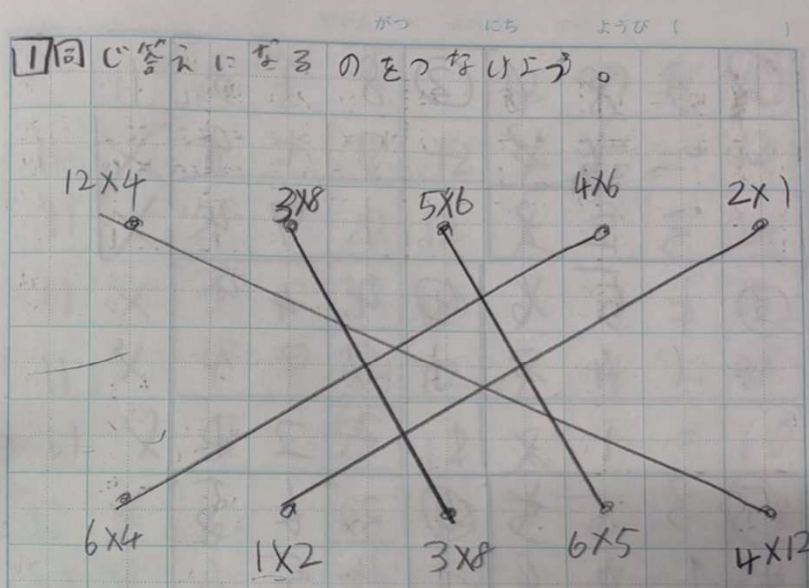 がつ にち ようび ( )
1 同じ答えになるのをつなげよう。
12×4 3×8 5×6 4×6 2×1
6×4 1×2 3×8 6×5 4×12